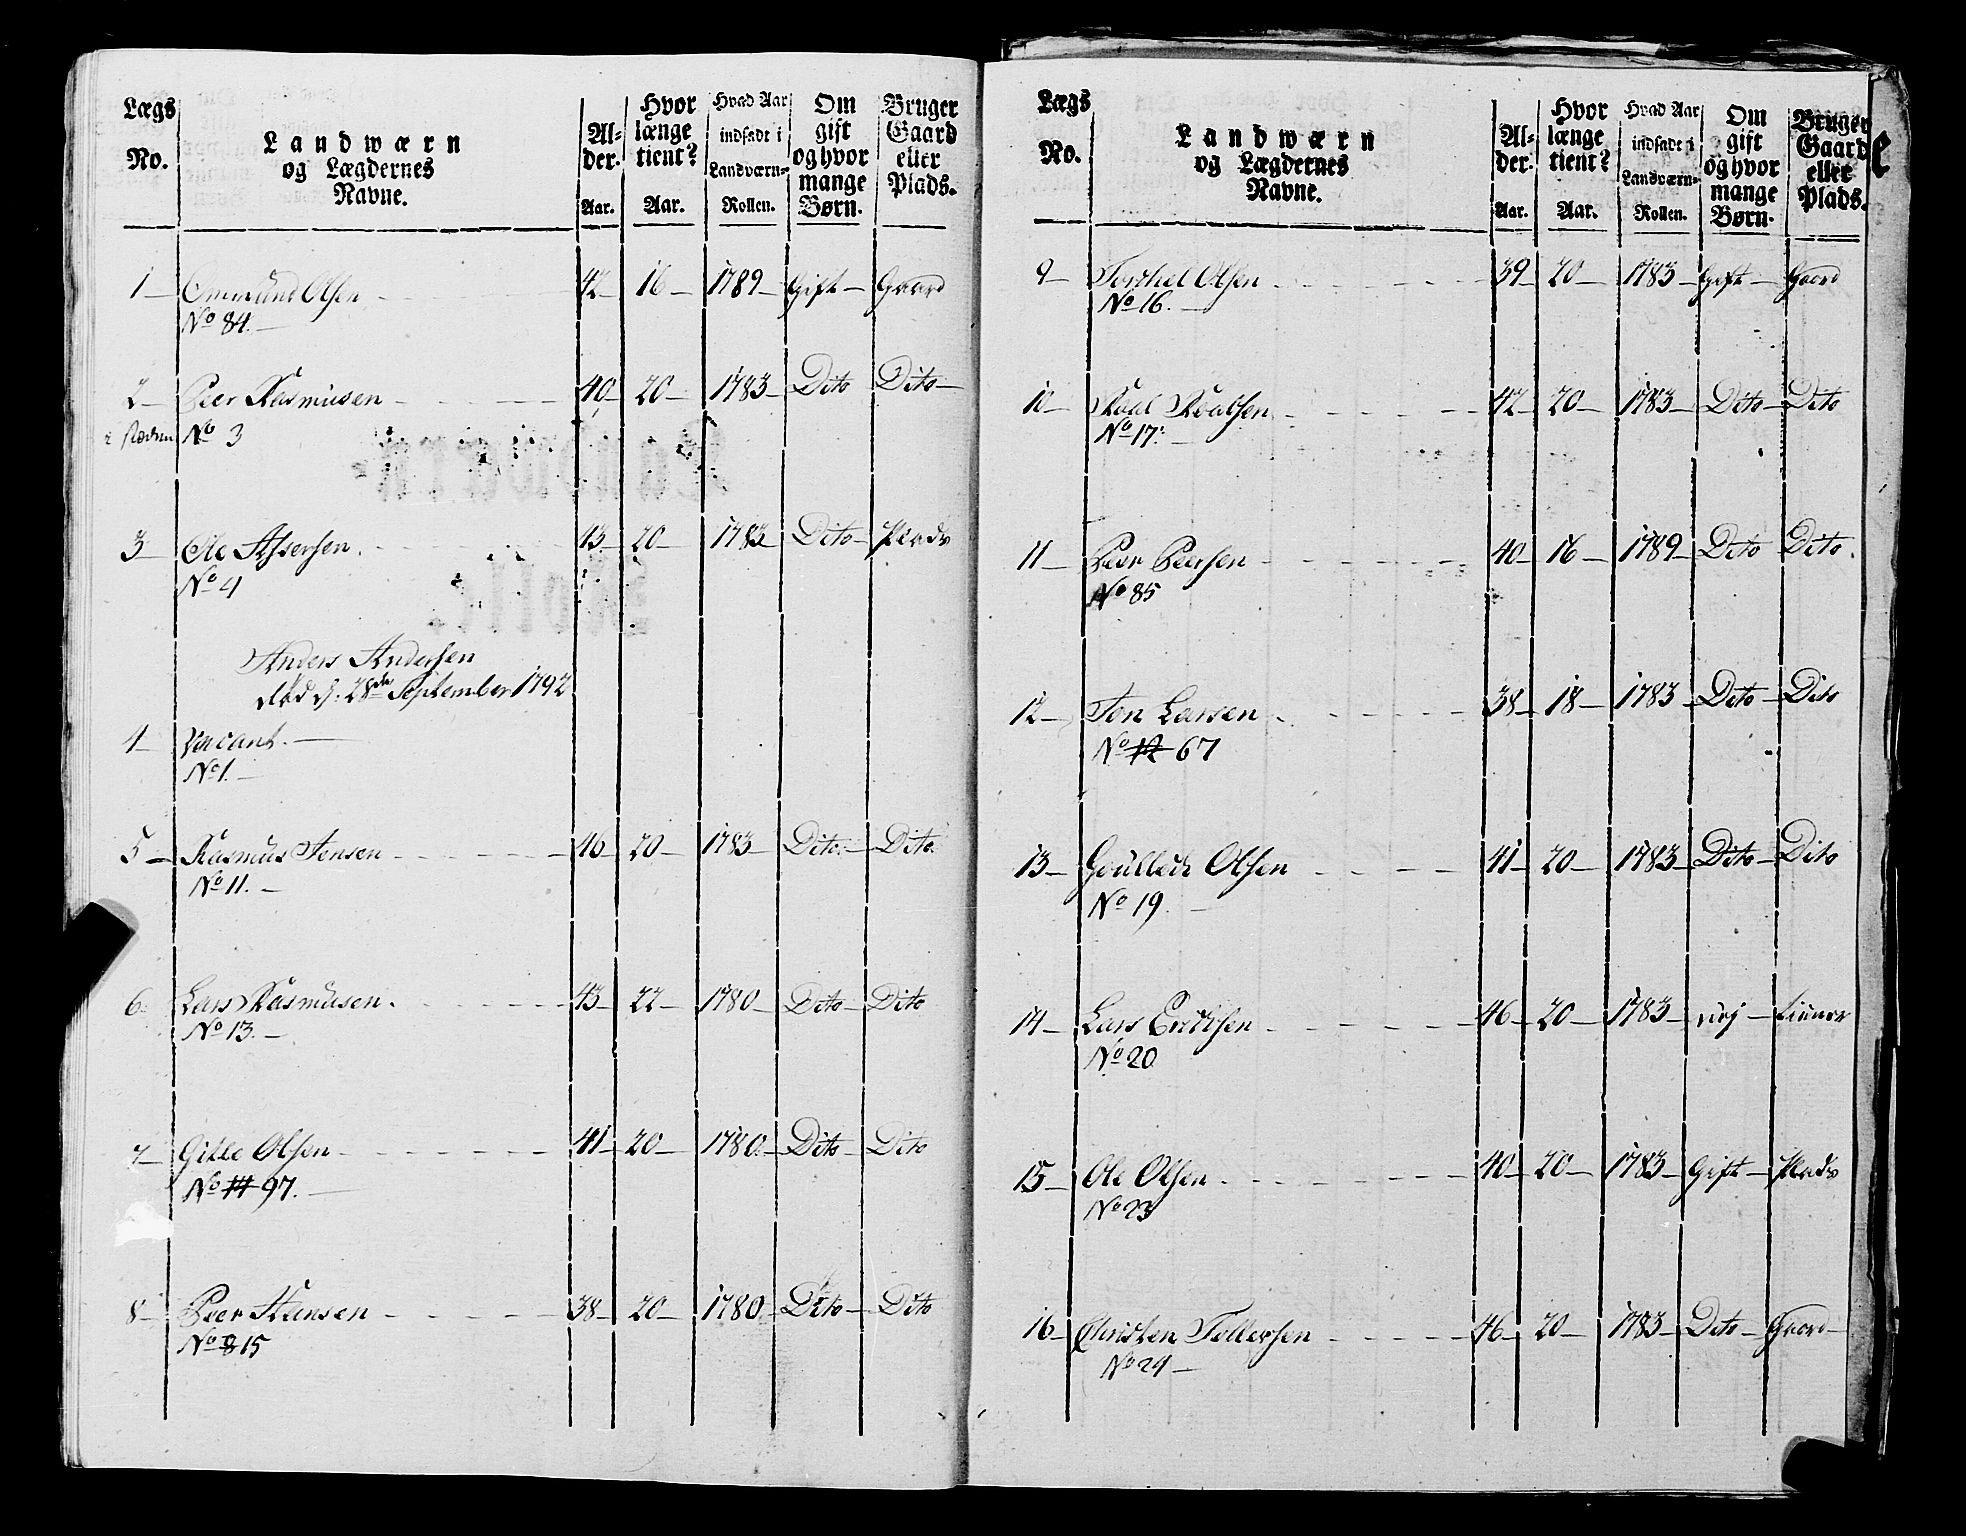 Lægs No. | Landwærn og Lægdernes Navne. | Alder. Aar. | Hvor længe tient? Aar. | Hvad Aar indsadt i Landværn-Rollen. | Om gift og hvor mange Børn. | Bruger Gaard eller Plads.
1 — Ommund Olsen | 42 | 16 — | 1789 — | Gift — | Gaard
No 84. —
2 — Peer Rasmusen | 40 | 20 — | 1783 — | Dito | Dito —
No 3
3 — Ole Assersen. | 43 | 20 — | 1783 | Dito — | Plads
No 4
Anders Andersen
død d. 28de September 1792
4 — Vacant. —
No 1. —
5 — Rasmus Jensen | 46 | 20 — | 1783 — | Dito. — | Dito.
No 11. —
6. Lars Rasmusen. | 43 — | 22 — | 1780 — | Dito — | Dito
No 13. —
7 — Gitle Olsen | 41 | 20 — | 1780. | Dito — | Dito
No 97. —
8 — Peer Hansen | 38 — | 20 — | 1780 | Dito — | Dito
No 8 15
Lægs No. | Landwærn og Lægdernes Navne. | Alder. Aar. | Hvor længe tient? Aar. | Hvad Aar indsadt i Landværn-Rollen. | Om gift og hvor mange Børn. | Bruger Gaard eller Plads.
9 — Torchel Olsen | 39 | 20 — | 1783 — | Gift — | Gaard
No 16. —
10 — Roal Roalsen | 42 — | 20 — | 1783 — | Dito — | Dito
No 17. —
11 — Peer Peersen | 40 — | 16 — | 1789 — | Dito | Dito.
No 85
12 — Jon Larsen | 38 — | 18 — | 1783 | Dito — | Dito
No 12 67
13 — Gulleck Olsen | 41 — | 20 — | 1783 — | Dito — | Dito
No 19. —
14 — Lars Erichsen | 46 — | 20 — | 1783 — | nej — | tiener
No 20
15 — Ole Olsen | 40 — | 20 — | 1783 — | Gift — | Plads
No 23
16 — Christen Tollefsen | 46 — | 20 — | 1783 — | Dito — | Gaard —
No 24 —